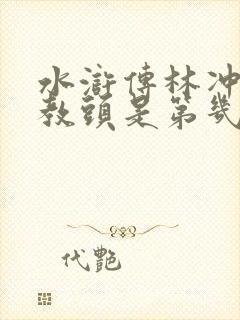 水滸傳林冲
教頭是第幾
代艷